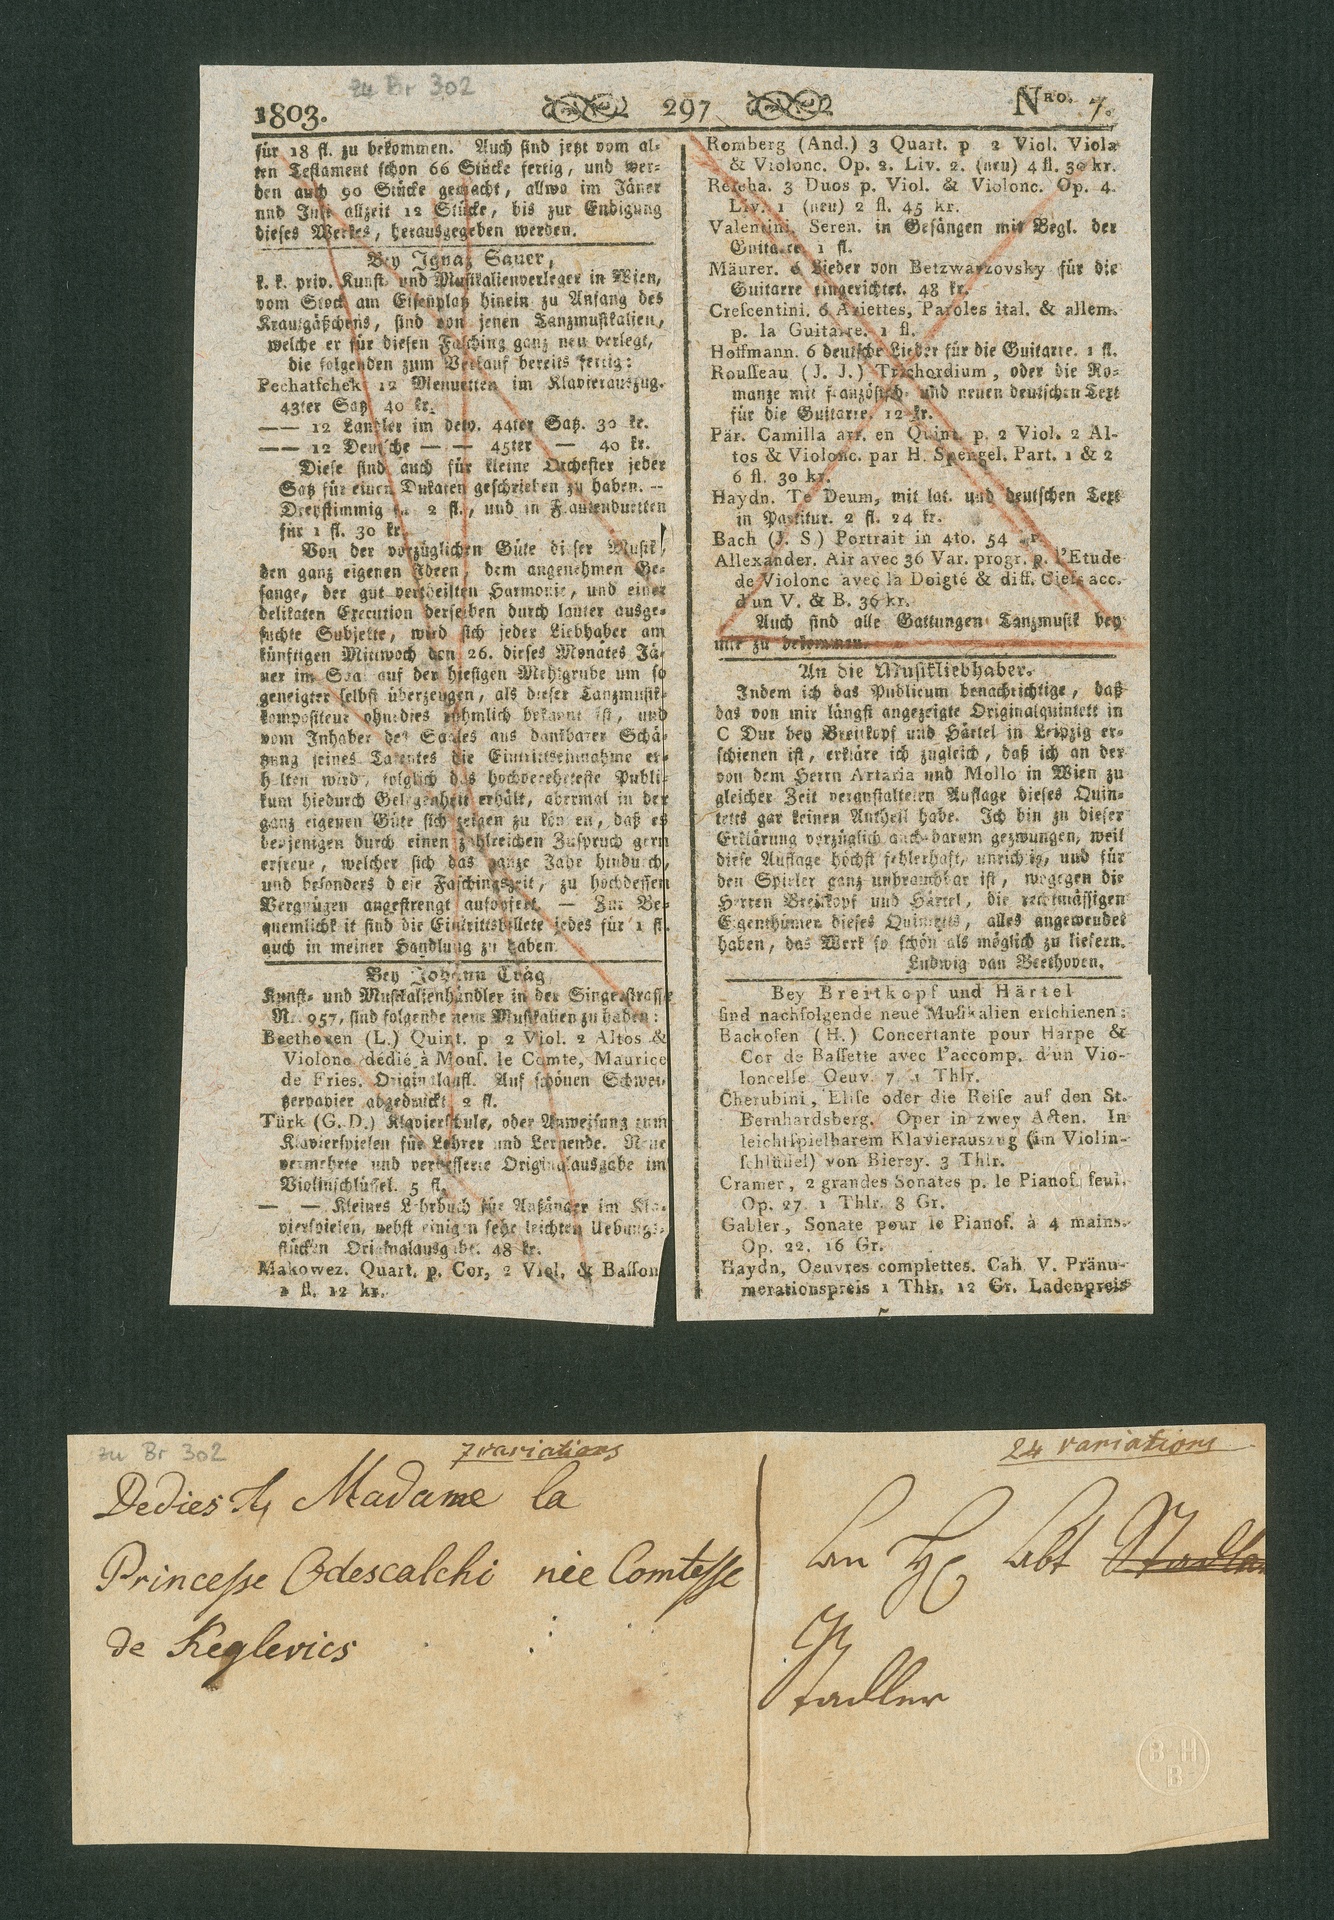 zu Br 302
1803. 297 Nro. 7.
für 18 fl. zu bekommen. Auch sind jetzt vom al-
ten Testament schon 66 Stücke fertig, und wer-
den auch 90 Stücke gemacht, allwo im Jäner
und Juli allzeit 12 Stücke, bis zur Endigung
dieses Werkes, herausgegeben werden.
Bey Ignaz Sauer,
k. k. priv. Kunst- und Musikalienverleger in Wien,
vom Stock am Eisenplatz hinein zu Anfang des
Krautgäßchens, sind von jenen Tanzmusikalien,
welche er für diesen Fasching ganz neu verlegt,
die folgenden zum Verkauf bereits fertig:
Pechatschek. 12 Menuetten im Klavierauszug.
43ter Satz 40 kr.
—— 12 Landler im detv. 44ter Satz. 30 kr.
—— 12 Deutsche — — 45ter — 40 kr.
Diese sind auch für kleine Orchester jeder
Satz für einen Dukaten geschrieben zu haben. --
Dreystimmig 2 fl., und in Flautenduetten
für 1 fl. 30 kr.
Von der vorzüglichen Güte dieser Musik,
den ganz eigenen Ideen, dem angenehmen Ge-
sange, der gut vertheilten Harmonie, und einer
delikaten Execution derselben durch lauter ausge-
suchte Subjekte, wird sich jeder Liebhaber am
künftigen Mittwoch den 26. dieses Monates Jä-
ner im Saal auf der hiesigen Mehlgrube um so
geneigter selbst überzeugen, als dieser Tanzmusik-
kompositeur ohnedies rühmlich bekannt ist, und
vom Inhaber des Saales aus dankbarer Schä-
tzung seines Talentes die Eintrittseinnahme er-
halten wird, folglich das hochverehrteste Publi-
kum hiedurch Gelegenheit erhält, abermal in der
ganz eigenen Güte sich zeigen zu können, daß es
denjenigen durch einen zahlreichen Zuspruch gern
erfreue, welcher sich das ganze Jahr hindurch,
und besonders diese Faschingszeit, zu hochdessen
Vergnügen angestrengt aufopfert. — Zur Be-
quemlichkeit sind die Eintrittsbillete jedes für 1 fl.
auch in meiner Handlung zu haben.
Bey Johann Träg,
Kunst- und Musikalienhändler in der Singerstrasse
Nr. 957, sind folgende neue Musikalien zu haben:
Beethoven (L.) Quint. p 2 Viol. 2 Altos &
Violonc. dédié à Mons. le Comte, Maurice
de Fries. Originalaufl. Auf schönen Schwei-
tzerpapier abgedruckt. 2 fl.
Türk (G. D.) Klavierschule, oder Anweisung zum
Klavierspielen für Lehrer und Lernende. Neue
vermehrte und verbesserte Originalausgabe im
Violinschlüssel. 5 fl.
— — Kleines Lehrbuch für Anfänger im Kla-
vierspielen, nebst einigen sehr leichten Uebungs-
stücken Originalausgabe. 48 kr.
Makowez. Quart. p. Cor, 2 Viol. & Basson
1 fl. 12 kr.
Romberg (And.) 3 Quart. p 2 Viol. Viola
& Violonc. Op. 2. Liv. 2. (neu) 4 fl. 30 kr.
Reicha. 3 Duos p. Viol. & Violonc. Op. 4.
Liv. 1 (neu) 2 fl. 45 kr.
Valentini. Seren. in Gesängen mit Begl. der
Guitarre. 1 fl.
Mäurer. 6 Lieder von Betzwarzovsky für die
Guitarre eingerichtet. 48 kr.
Crescentini. 6 Ariettes, Paroles ital. & allem.
p. la Guitarre. 1 fl.
Hoffmann. 6 deutsche Lieder für die Guitarre. 1 fl.
Rousseau (J. J.) Trichordium, oder die Ro-
manze mit französisch- und neuen deutschen Text
für die Guitarre. 12 kr.
Pär. Camilla arr. en Quint. p. 2 Viol. 2 Al-
tos & Violonc. par H. Spengel. Part. 1 & 2
6 fl. 30 kr.
Haydn. Te Deum, mit lat. und deutschen Text
in Partitur. 2 fl. 24 kr.
Bach (J. S.) Portrait in 4to. 54 kr.
Allexander. Air avec 36 Var. progr. p. l'Etude
de Violonc avec la Doigté & diff. Clefs acc.
d'un V. & B. 36 kr.
Auch sind alle Gattungen Tanzmusik bey
mir zu bekommen.
An die Musikliebhaber.
Indem ich das Publicum benachrichtige, daß
das von mir längst angezeigte Originalquintett in
C Dur bey Breitkopf und Härtel in Leipzig er-
schienen ist, erkläre ich zugleich, daß ich an der
von dem Herrn Artaria und Mollo in Wien zu
gleicher Zeit veranstalteten Auflage dieses Quin-
tetts gar keinen Antheil habe. Ich bin zu dieser
Erklärung vorzüglich auch darum gezwungen, weil
diese Auflage höchst fehlerhaft, unrichtig, und für
den Spieler ganz unbrauchbar ist, wogegen die
Herren Breitkopf und Härtel, die rechtmässigen
Eigenthümer dieses Quintetts, alles angewendet
haben, das Werk so schön als möglich zu liefern.
Ludwig van Beethoven.
Bey Breitkopf und Härtel
sind nachfolgende neue Musikalien erschienen:
Backofen (H.) Concertante pour Harpe &
Cor de Bassette avec l'accomp. d'un Vio-
loncelle. Oeuv. 7. 1 Thlr.
Cherubini, Elise oder die Reise auf den St.
Bernhardsberg. Oper in zwey Acten. In
leichtspielbarem Klavierauszug (im Violin-
schlüssel) von Bierey. 3 Thlr.
Cramer, 2 grandes Sonates p. le Pianof. seul.
Op. 27. 1 Thlr. 8 Gr.
Gabler, Sonate pour le Pianof. à 4 mains.
Op. 22. 16 Gr.
Haydn, Oeuvres complettes. Cah V. Pränu-
merationspreis 1 Thlr. 12 Gr. Ladenpreis
zu Br 302
7 variations
Dedies A Madame la
Princesse Odescalchi née Comtesse
de Keglevics
24 variations
An H Abt Stadler
Stadler
B H
B